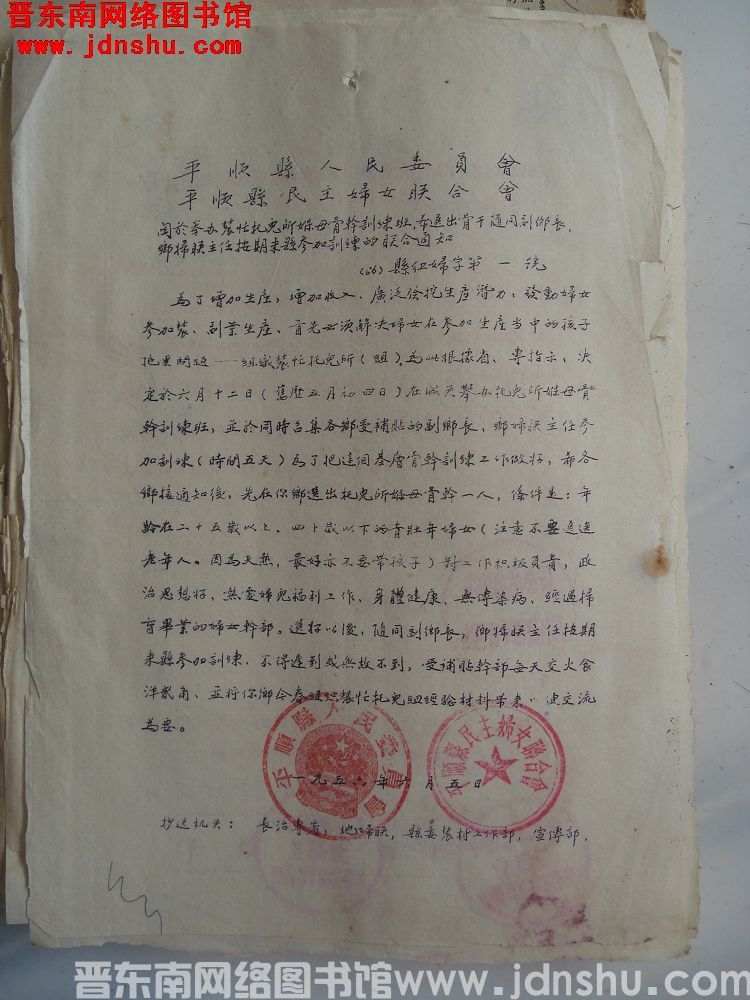 晋东南网络图书馆
www.jdnshu.com
平順縣人民委員會
平順縣民主婦女联合會
関於举办農忙托兒所姝母骨幹訓練班,希选出骨干随同副鄉長、
鄉婦联主任按期来縣参加訓練的联合通知
(56)縣妇字第一號
為了增加生産,增加收入,廣泛挖生産潜力,發動婦女
参加農、副業生産,首先必須解决婦女在参加生産当中的孩子
拖累問題——組織農忙托兒所(組)為此根據省、專指示,决
定於六月十二日(舊歷五月初四日)在城关舉办托兒所姝母骨
幹訓練班,並於同時召集各鄉受補貼的副鄉長、鄉婦联主任参
加訓練(時間五天)為了把這個基層骨幹訓練工作做好,希各
鄉接通知後,先在你鄉选出托兒所姝母骨幹一人,條件是:年
齡在二十五歲以上、四十歲以下的青壯年婦女(注意不要选
老年人。因為天熱,最好亦不要帶孩子)對工作积极負責,政
治思想好、熱愛婦兒福利工作、身體健康、無傳染病、經過掃
盲畢業的婦女幹部。選好以後,随同副鄉長,鄉婦联主任按期
来縣参加訓練,不得遲到或無故不到,受補貼幹部每天交火食
洋貳角、並将你鄉今春組织農忙托兒組經驗材料带来一块交流
為要。
平順縣人民委員會
平順縣民主婦女聯合會
一九五六年六月五日
抄送机关:長治專署,地婦联,縣委農村工作部,宣傳部.
晋东南网络图书馆www.jdnshu.com